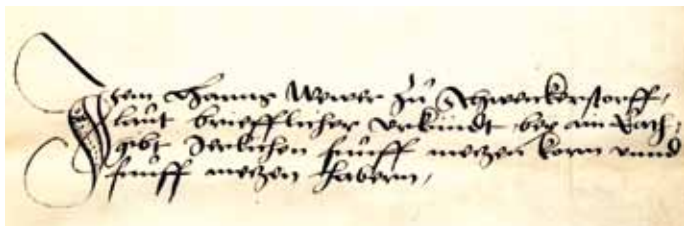 Item Hanns Weber zu Schweickerstorff,
laut brieflicher urkundt bey ain Rath,
gibt Jerlichen funff meczen korn vnnd
funff meczen habern,